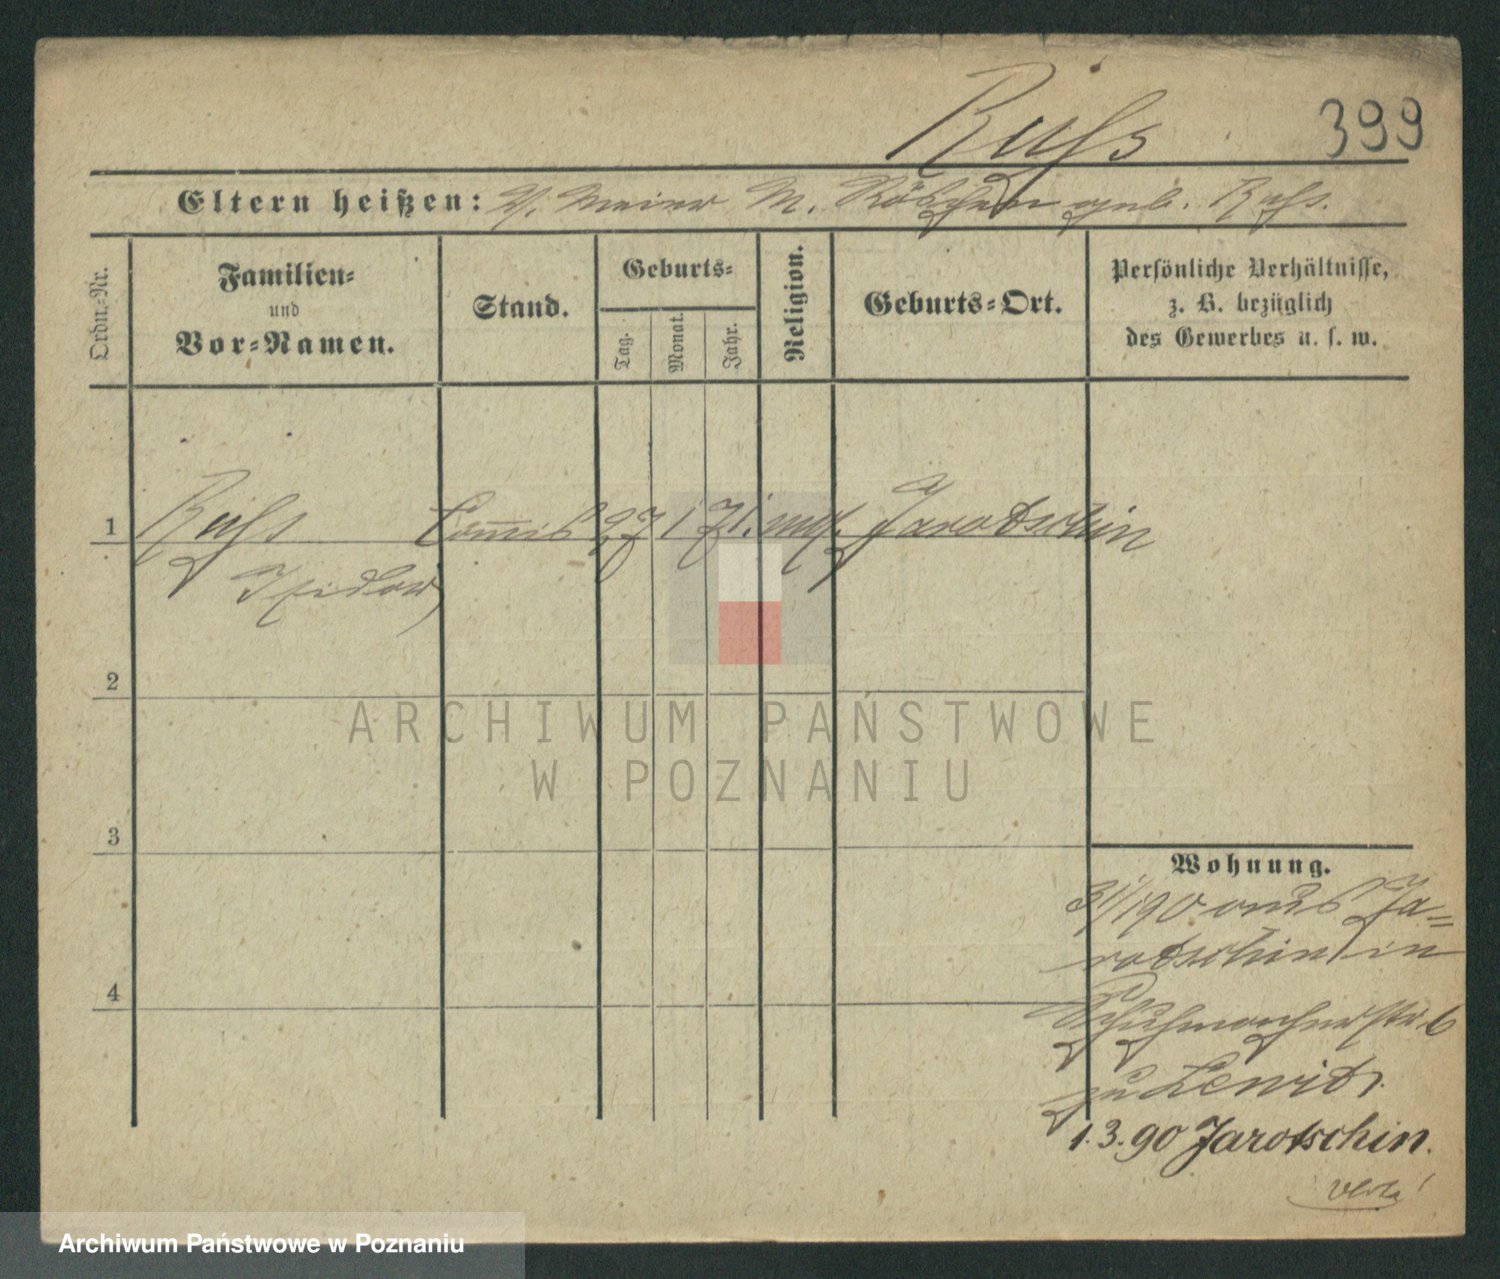 Rufs
399
Eltern heißen: V. Meier M. geb. Rufs.
Ordn.-Nr.
Familien-
und
Vor-Namen.
Stand.
Geburts-
Tag.
Monat.
Jahr.
Religion.
Geburts-Ort.
Persönliche Verhältnisse,
z. B. bezüglich
des Gewerbes u. s. w.
1 Rufs Com̅is 27 1 71. mos. Jarotschin
Isidor
2
3
4
Wohnung.
31/1 90 aus Ja-
rotschin in
Schuhmacherstr 6
zu Lewin
1.3.90 Jarotschin.
ARCHIWUM PAŃSTWOWE
W POZNANIU
Archiwum Państwowe w Poznaniu